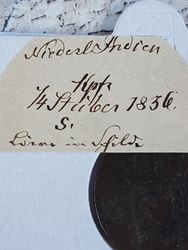 Niederl. Indien
Kpf.
1/4 Stüber 1836.
S.
Löwe im Schilde